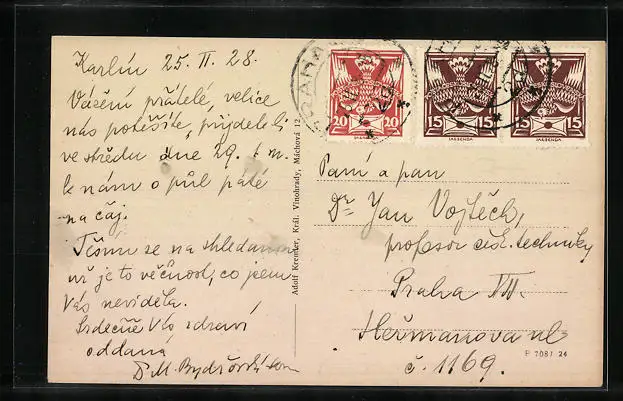 Karlín 25. II. 28.
Vážení přátelé, velice
nás potěšíte, přijdete-li
ve středu dne 29. t. m.
k nám o půl páté
na čaj.
Těším se na shledanou
už je to věčnost, co jsem
Vás neviděla.
Srdečně Vás zdraví
oddaná
Dr M. Bydžovská
Adolf Kremler, Král. Vinohrady, Máchova 12
PRAHA
20 20
15 15
15 15
Paní a pan
Dr Jan Vojtěch,
profesor čes. techniky
Praha VII.
Heřmanova ul
č. 1169.
P 7087 24